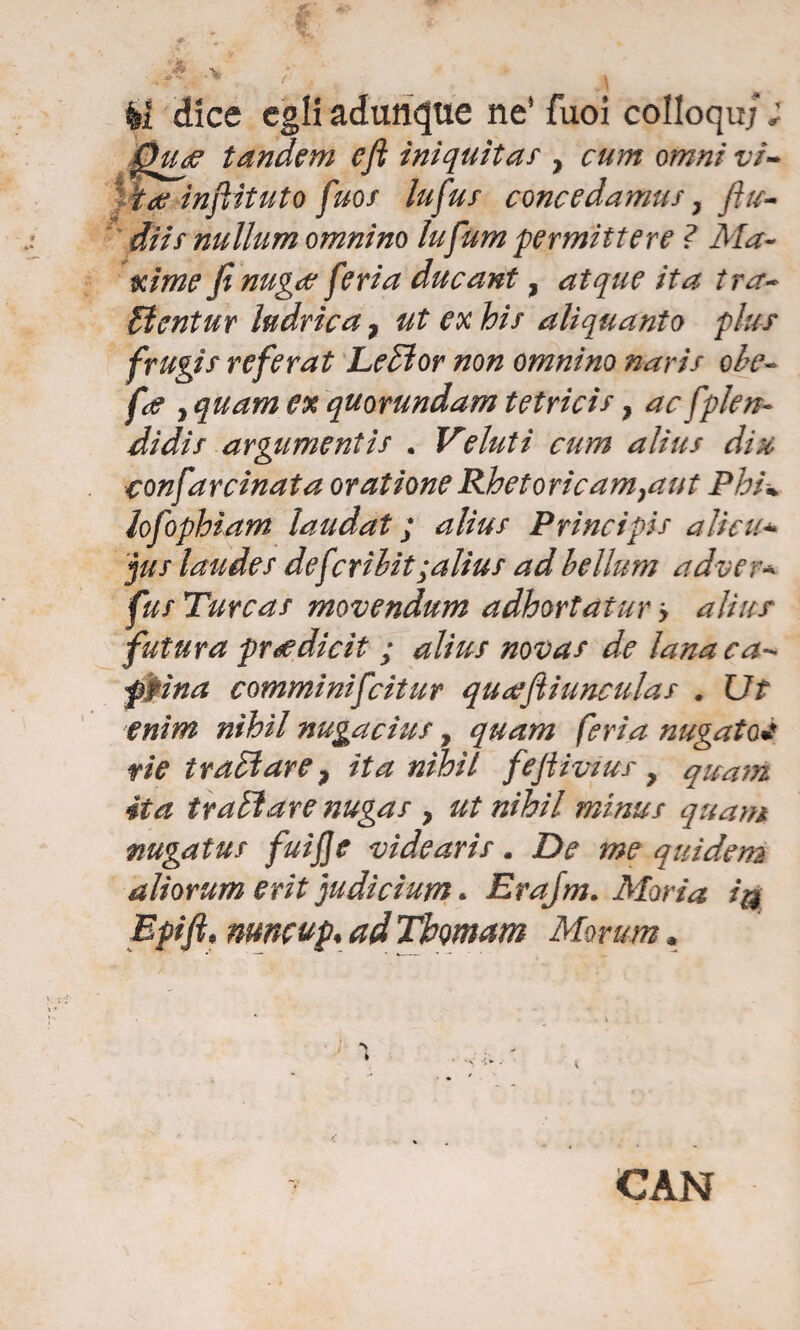 si dice egli adunque ne' ſuoi colloquj:
Quæ tandem eſt iniquitas, cum omni vi-
tæ inſtituto ſuos luſus concedamus, ſtu-
diis nullum omnino luſum permittere? Ma-
xime ſi nugæ ſeria ducant, atque ita tra-
ctentur ludrica, ut ex his aliquanto plus
frugis referat Lector non omnino naris obe-
ſæ, quam ex quorundam tetricis, ac ſplen-
didis argumentis. Veluti cum alius diu
conſarcinata oratione Rhetoricam, aut Phi-
loſophiam laudat; alius Principis alicu-
jus laudes deſcribit; alius ad bellum adver-
ſus Turcas movendum adhortatur; alius
futura prædicit; alius novas de lana ca-
prina comminiſcitur quæſtiunculas. Ut
enim nihil nugacius, quam ſeria nugato-
rie tractare, ita nihil feſtivius, quam
ita tractare nugas, ut nihil minus quam
nugatus fuiſſe videaris. De me quidem
aliorum erit judicium. Eraſm. Moria in
Epiſt. nuncup. ad Thomam Morum.
CAN